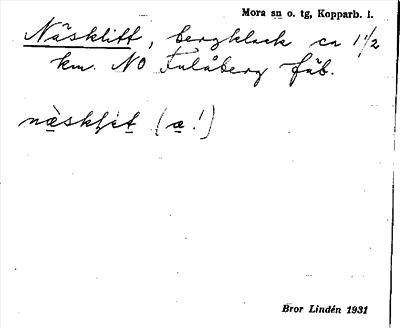 Mora sn o. tg, Kopparb. l.
Näsklitt, bergklack ca 1 1/2
km. NO Fulåberg fäb.
(æ!)
Bror Lindén 1931